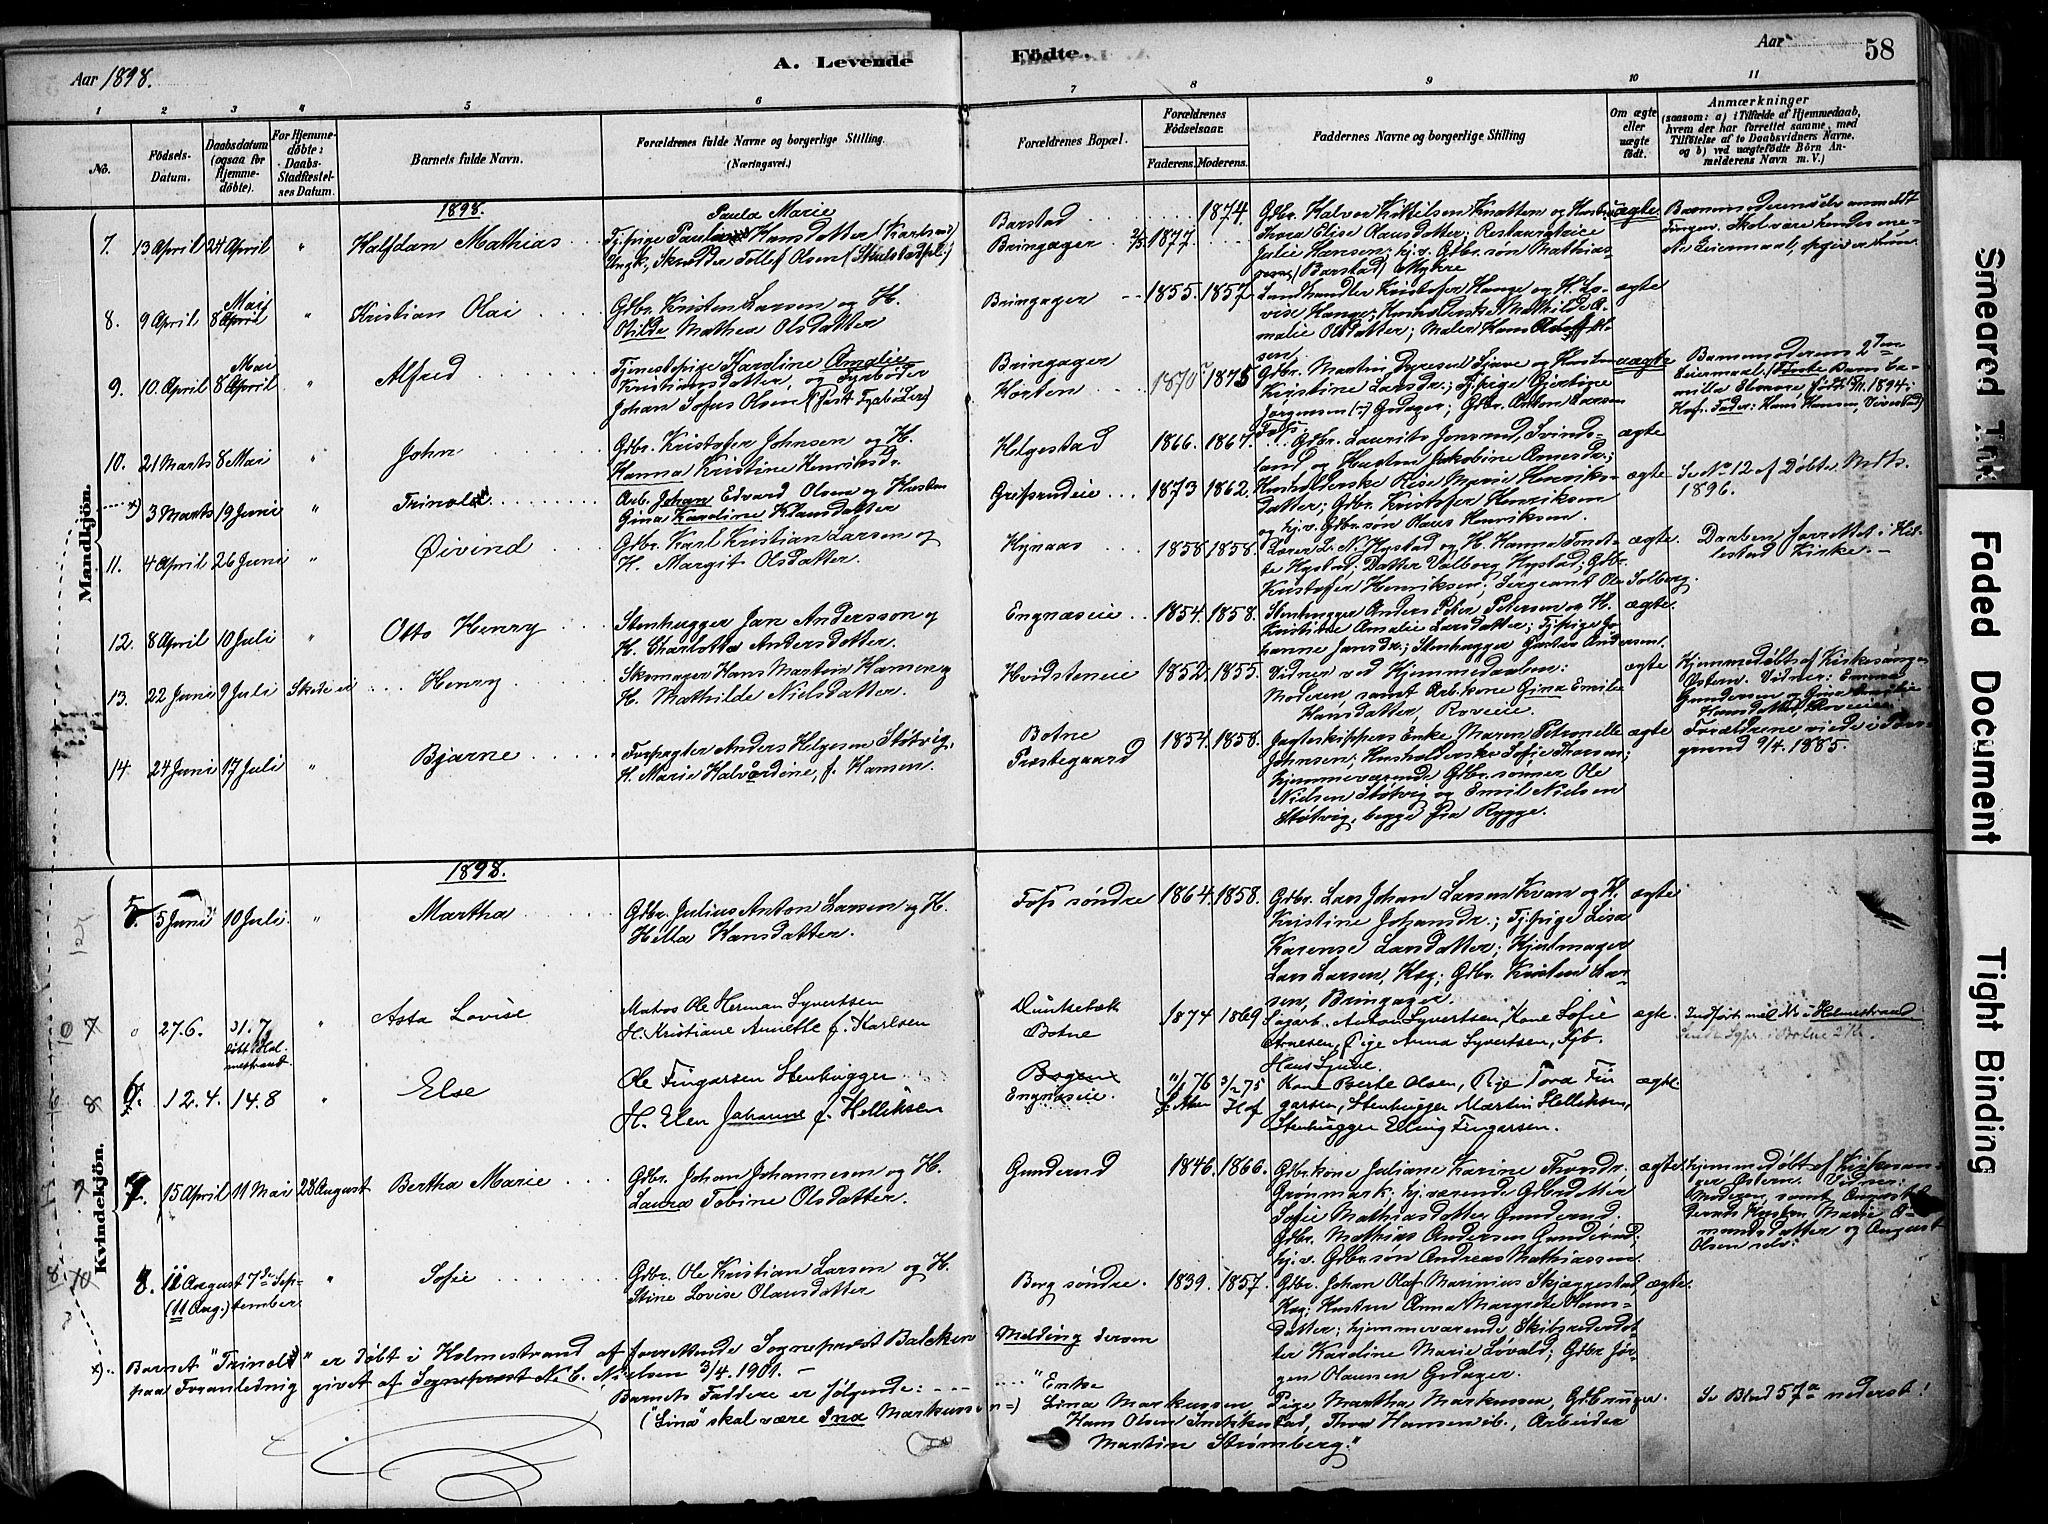 Aar 1898.
A. Levende
Födte.
Aar
58
1 2 3 4 5 6 7 8 9 10 11
No.
Födsels-Datum.
Daabsdatum (ogsaa for Hjemmedöbte).
For Hjemmedöbte: Daabs-Stadfæstelses Datum.
Barnets fulde Navn.
Forældrenes fulde Navne og borgerlige Stilling. (Næringsvei.)
Forældrenes Bopæl.
Forældrenes Födselsaar.
Faderens. Moderens.
Faddernes Navne og borgerlige Stilling
Om ægte eller uægte födt.
Anmærkninger (saasom: a) i Tilfælde af Hjemmedaab, hvem der har forrettet samme, med Tilföielse af to Daabsvidners Navne, og b) ved uægtefödte Börn Anmelderens Navn m. V.)
Mandkjön.
1898.
7. 13 April 24 April " Halfdan Mathias
Paula Marie
Tjpige Hansdatter (Barstad)
Ungk. Skrædder Tollef Olsen
Barstad 1874.
Bringager 1877
Gdbr. Halvor Kittilsen Knatten og Hustru
Thora Elise Olausdatter; Restauratrice
Julie Hansen; hj.v. Gdbr. søn Mathias
(Barstad) Myhre
uægte
8. 9 April 8 Mai April " Kristian Olai
Gdbr. Kristen Larsen og H.
Otilde Mathea Olsdatter
Bringager 1855. 1857
Landhandler Kristofer Hauge og H. Lovise Hauge; Husholderske Mathilde Amalie Olsdatter; Maler Hans Olsen
ægte
9. 10 April 8 Mai April " Alfred
Tjenestepige Karoline Amalie
Kristiansdatter, og Fyrbøder
Johan Sofus Olsen (fast Fyrbøder)
Bringager
Horten 1870 1875
Gdbr. Martin Syvertsen Sjuve og Hustru
Kristine Larsdr.; Tjpige Bertine
Jørgensen Godager; Gdbr. Anton Larsen
Foss.
uægte
Barnemoderens 2den
Leiermaal. Første Barn
Elenore født 1894.
Hof. Fader: Hans Hansen,
10. 21 Marts 8 Mai " John
Gdbr. Kristofer Johnsen og H.
Hanna Kristine Henriksd.
Helgestad 1866. 1867.
Gdbr. Laurits Jonsrud, Svindsland, og Hustru Jakobine Arnesdr.;
ægte
x) 3 Marts 19 Juni " Trinold
Arb. Johan Edvard Olsen og Hustru
Gina Karoline Klausdatter
Grefsrudeie 1873 1862.
Husholderske Else Marie Henriksdatter; Gdbr. Kristofer Henriksen
og hj.v. Gdbr. søn Olaus Henriksen.
ægte
Se No 12 af Døbte Mdk.
1896.
11. 4 April 26 Juni " Øivind
Gdbr. Karl Kristian Larsen og
H. Margit Olsdatter.
Hynaas 1858. 1858.
Lærer L. N. Hystad og H. Hanna
Hystad; Datter Valborg Hystad; Gdbr.
Kristofer Henriksen; Sergeant Ole Solberg.
ægte.
Daaben forrettet i Hillestad Kirke. —
12. 8 April 10 Juli " Otto Henry
Stenhugger Jan Andersson og
H. Charlotta Andersdotter.
Engnæseie 1854. 1858.
Stenhugger Anders Peter Petersen og H.
Kristine Amalie Larsdatter; Tjpige Johanne Jansdr.; Stenhugger Gustav Andersen.
ægte.
13. 22 Juni 9 Juli Skede ei Henry
Skomager Hans Martin Hansen og
H. Mathilde Nielsdatter.
Hvidsteneie 1852. 1855.
Vidner ved Hjemmedaaben:
Moderen samt Arb.kone Gina Emilie
Hansdatter, Roveie.
ægte
Hjemmedøbt af Kirkesanger
Østern. Vidner: Emma
Gundersen og Gina Emilie
Hansdatter Roveie
14. 24 Juni 17 Juli " Bjarne
Forpagter Anders Helgesen Støtvig,
H. Marie Halvardine, f. Hansen.
Botne
Præstegaard 1854. 1858.
Jagteskippers Enke Maren Petronelle
Johnsen; Husholderske Sofie Thoresen;
hjemmeværende Gdbr. sønner Ole
Nielsen Støtvig og Emil Nielsen
Støtvig, begge fra Rygge.
ægte
Forældrene viede i
9/4. 1885.
Kvindekjön.
1898.
5. 5 Juni 10 Juli " Martha
Gdbr. Julius Anton Larsen og H.
Helta Hansdatter.
Foss søndre 1864. 1858.
Gdbr. Lars Johan Larsen Kvan og H.
Kristine Johansdr.; Tjpige Lisa
Karense Larsdatter; Hjulmager
Lars Larsen, Hæg; Gdbr. Kristen Larsen, Bringager.
ægte
27.6. 31.7 døbt i Holmestrand. " Asta Lovise
Matros Ole Herman Syvertsen
H. Kristiane Annette f. Karlsen
Botne 1874 1869
Sagarb. Anton Syvertsen, Kone Sofie
Arnesen, Pige Anna Syvertsen, Fyb.
Hans Sjuve.
ægte.
Indført med No i Holmestrand
6. 12.4. 14.8 Else
Ole Fingarsen Stenhugger
H. Elen Johanne f. Helliksen
Bogen
Engnæseie. 11/1 76 3/2 75
Hof
Kone Berte Olsen, Pige Tora Fingarsen, Stenhugger Martin Helliksen,
Stenhugger Elling Fingarsen.
ægte.
7. 15 April 11 Mai 28 August Bertha Marie
Gdbr. Johan Johannesen og H.
Laura Tobine Olsdatter.
Gunderud 1846. 1866.
Gdbrkone Juliane Karine Thorsdr.
Grønmark; hj.værende Gdbrdatter
Sofie Mathiasdatter Gunderud.
Gdbr. Mathias Andersen Gunderud,
hj.v. Gdbr.søn Andreas Mathiassen.
ægte.
Hjemmedøbt af Kirkesanger Østern. Vidner:
Moderen, samt
Hustru Marie Amundsdatter og August
Olsen selv.
8. 11 August (11 Aug.) 7de September " Sofie
Gdbr. Ole Kristian Larsen og H.
Stine Lovise Olausdatter
Borg søndre. 1839. 1857.
Gdbr. Johan Olaf Marinius Skjæggestad,
Hæg; Hustru Anna Margrete Hansdatter; hjemmeværende Skibsrederdatter Karoline Marie Løvald; Gdbr. Jørgen Olaussen Godager.
ægte.
x) Barnet "Trinold" er døbt i Holmestrand af forrettende Sogneprest Balchen
paa Foranledning givet af Sogneprest N. C. Nielsen 3/4. 1901. —
Melding dersen
Barnets Faddere er følgende:
("Lina" skal være Ina Markussen =)
"Enke
Lina Markussen, Pige Martha Markussen, Gdbruger
Hans Olsen, Thora Hansen ib., Arbeider
Martin Strømberg."
Se Blad 57a nederst!
Smeared Ink
Faded Document
Tight Binding